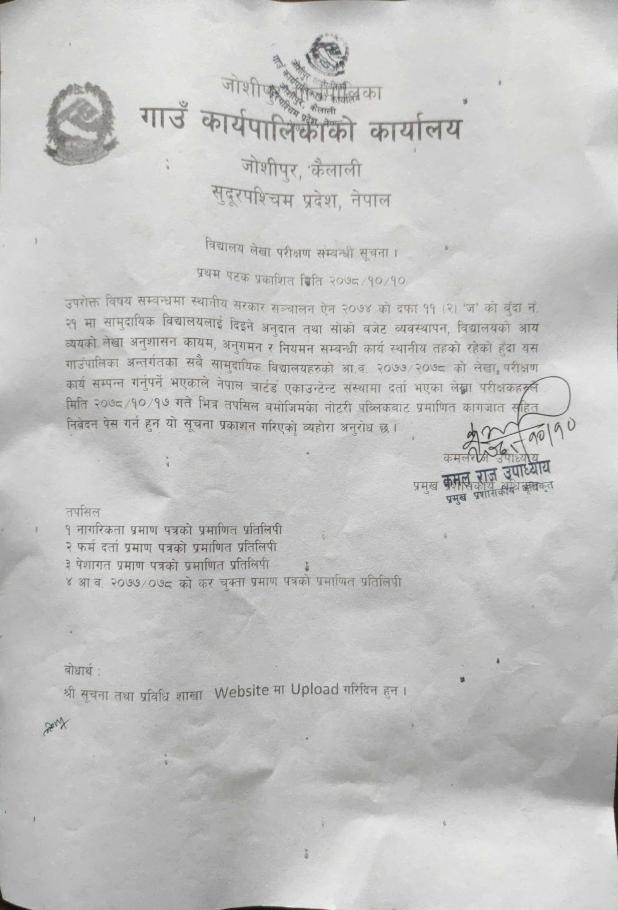 जोशीपुर गाउँपालिका
गाउँ कार्यपालिकाको कार्यालय
जोशीपुर, कैलाली
सुदूरपश्चिम प्रदेश, नेपाल
विद्यालय लेखा परीक्षण सम्बन्धी सूचना ।
प्रथम पटक प्रकाशित मिति २०७८/१०/१०
उपरोक्त विषय सम्बन्धमा स्थानीय सरकार सञ्चालन ऐन २०७४ को दफा ११ (२) 'ज' को बुंदा नं.
२१ मा सामुदायिक विद्यालयलाई दिइने अनुदान तथा सोको बजेट व्यवस्थापन, विद्यालयको आय
व्ययको लेखा अनुशासन कायम, अनुगमन र नियमन सम्बन्धी कार्य स्थानीय तहको रहेको हुंदा यस
गाउंपालिका अन्तर्गतका सबै सामुदायिक विद्यालयहरुको आ.व. २०७७/२०७८ को लेखा परीक्षण
कार्य सम्पन्न गर्नुपर्ने भएकाले नेपाल चार्टर्ड एकाउन्टेन्ट संस्थामा दर्ता भएका लेखा परीक्षकहरुले
मिति २०७८/१०/१७ गते भित्र तपसिल बमोजिमका नोटरी पब्लिकबाट प्रमाणित कागजात सहित
निवेदन पेस गर्न हुन यो सूचना प्रकाशन गरिएको व्यहोरा अनुरोध छ ।
कमलराज उपाध्याय
कमल राज उपाध्याय
प्रमुख प्रशासकीय अधिकृत
प्रमुख प्रशासकीय अधिकृत
तपसिल
१ नागरिकता प्रमाण पत्रको प्रमाणित प्रतिलिपी
२ फर्म दर्ता प्रमाण पत्रको प्रमाणित प्रतिलिपी
३ पेशागत प्रमाण पत्रको प्रमाणित प्रतिलिपी
४ आ.व. २०७७/०७८ को कर चुक्ता प्रमाण पत्रको प्रमाणित प्रतिलिपी
बोधार्थ :
श्री सूचना तथा प्रविधि शाखा Website मा Upload गरिदिन हुन ।